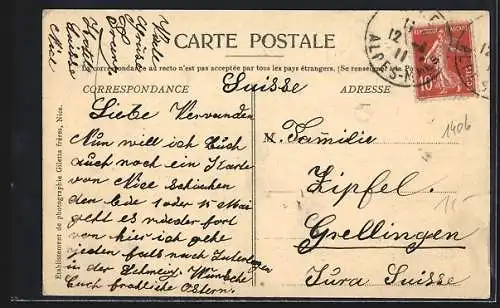 CARTE POSTALE
La correspondance au recto n'est pas acceptée par tous les pays étrangers. (Se renseigner à la Poste)
Suisse
CORRESPONDANCE
ADRESSE
Liebe Verwanden
Nun will ich Euch
auch noch ein Karte
von Nice schicken
den 1 oder 15 Mai
geht es wieder fort
von hier ich gehe
jeden falls nach Interlagen
in der Schweiz. Wünsche
Euch frohliche Ostern.
M. Familie
Zipfel.
Grellingen
Jura Suisse
1406
ALPES-M
12
11
10
Hotel
Suisse
Nice
Etablissement de photographie Giletta frères, Nice.